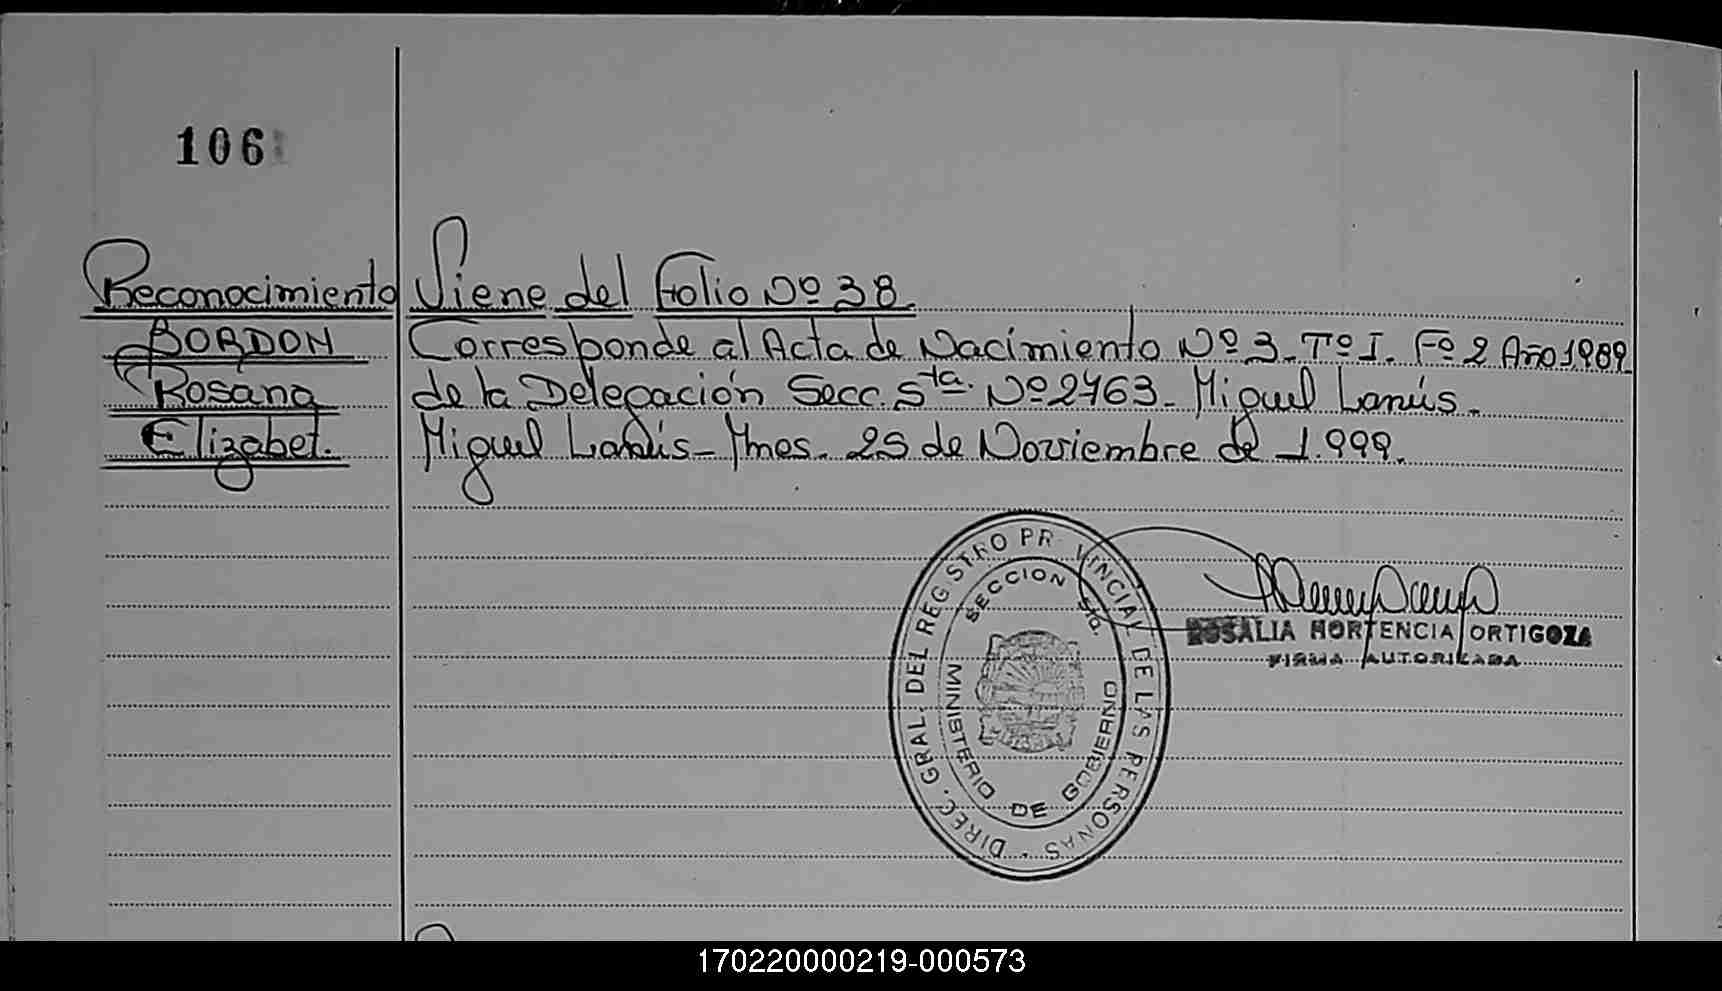 106
Reconocimiento
BORDON
Rosana
Elizabet.
Viene del Folio Nº 38.
Corresponde al Acta de Nacimiento Nº 3. Tº I. Fº 2 Año 1.989
de la Delegación Secc. 5ta. Nº 2463. Miguel Lanús.
Miguel Lanús - Mnes. 25 de Noviembre de 1.999.
DIREC. GRAL. DEL REGISTRO PR VINCIAL DE LAS PERSONAS
SECCION 5ta.
MINISTERIO DE GOBIERNO
ROSALIA HORTENCIA ORTIGOZA
FIRMA AUTORIZADA
170220000219-000573